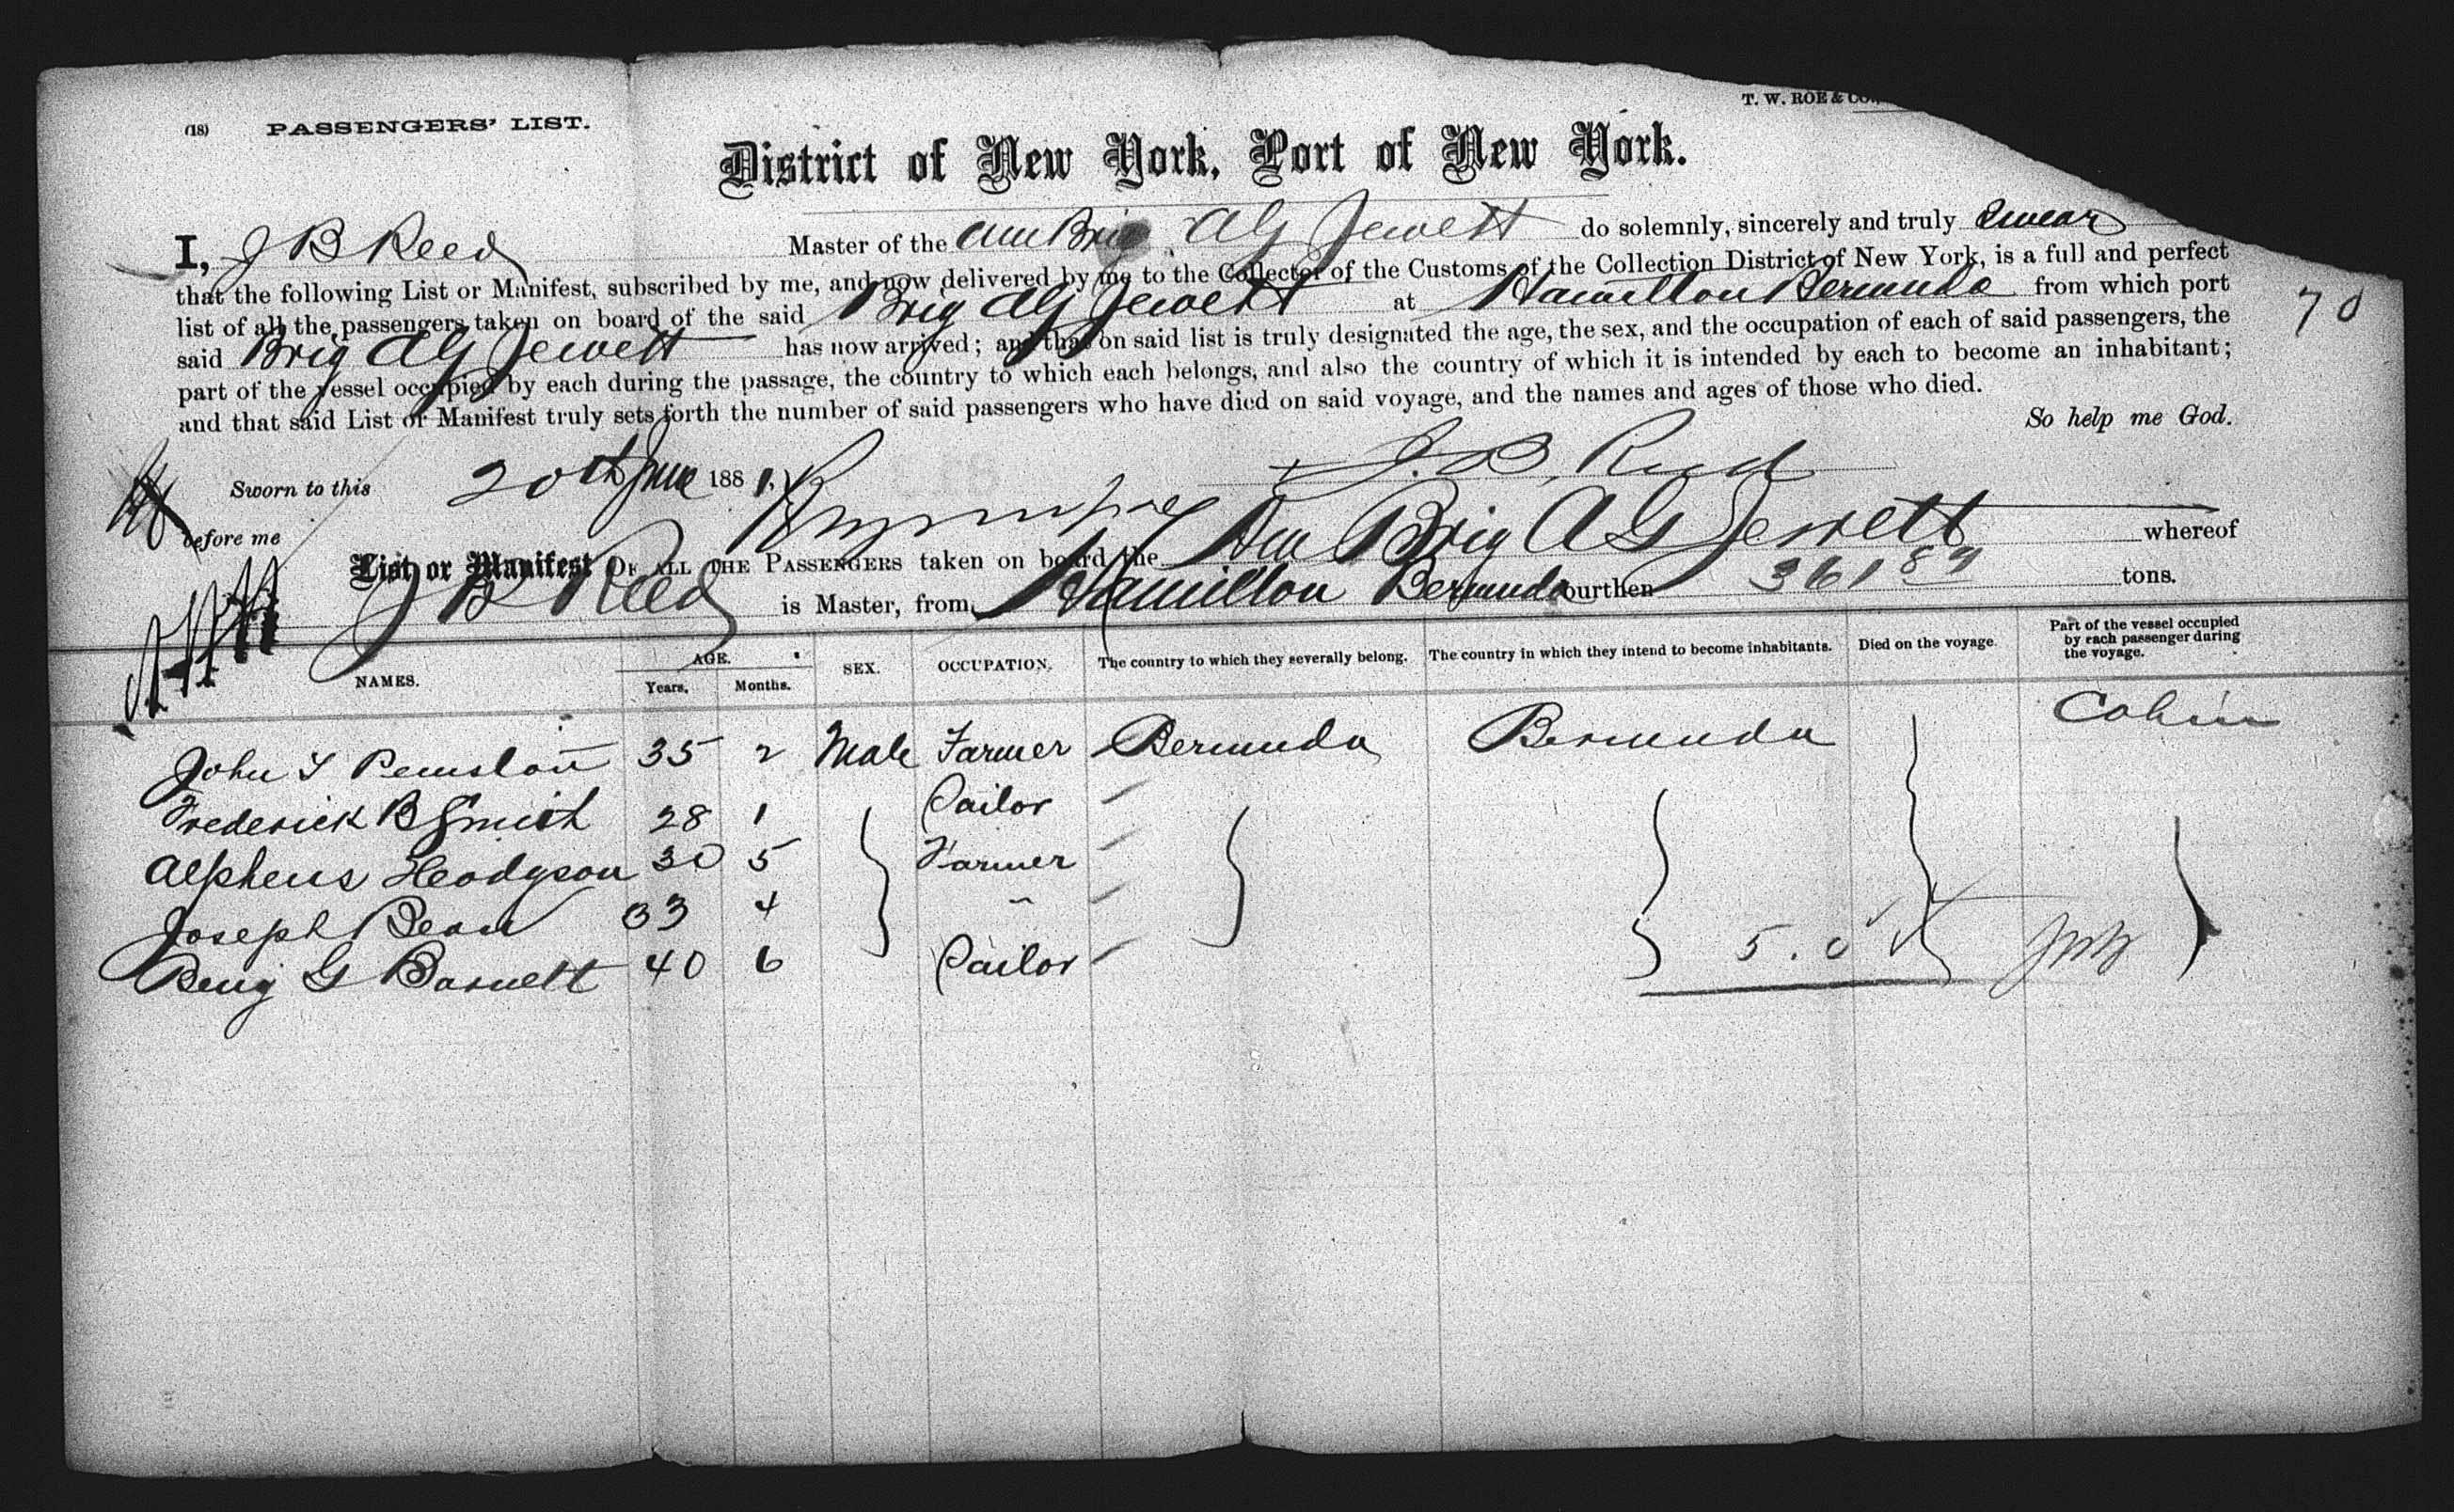 (18) PASSENGERS' LIST.
T. W. ROE & CO.,
District of New York, Port of New York.
I, J B Reed Master of the Am Brig A G Jewett do solemnly, sincerely and truly Swear
that the following List or Manifest, subscribed by me, and now delivered by me to the Collector of the Customs of the Collection District of New York, is a full and perfect
list of all the passengers taken on board of the said Brig A G Jewett at Hamilton Bermuda from which port
said Brig A G Jewett has now arrived; and that on said list is truly designated the age, the sex, and the occupation of each of said passengers, the
part of the vessel occupied by each during the passage, the country to which each belongs, and also the country of which it is intended by each to become an inhabitant;
and that said List or Manifest truly sets forth the number of said passengers who have died on said voyage, and the names and ages of those who died.
So help me God.
70
Sworn to this 20th June 1881, J. B. Reed
before me
List or Manifest OF ALL THE PASSENGERS taken on board the Am Brig A G Jewett whereof
J B Reed is Master, from Hamilton Bermuda burthen 361 89 tons.
NAMES. AGE. Years. Months. SEX. OCCUPATION. The country to which they severally belong. The country in which they intend to become inhabitants. Died on the voyage. Part of the vessel occupied by each passenger during the voyage.
John Peniston 35 2 Male Farmer Bermuda Bermuda Cabin
Frederick B Smith 28 1 Sailor
Alpheus Hodgson 30 5 Farmer
Joseph Bean 33 4 "
Benj G Barnett 40 6 Sailor
5.0